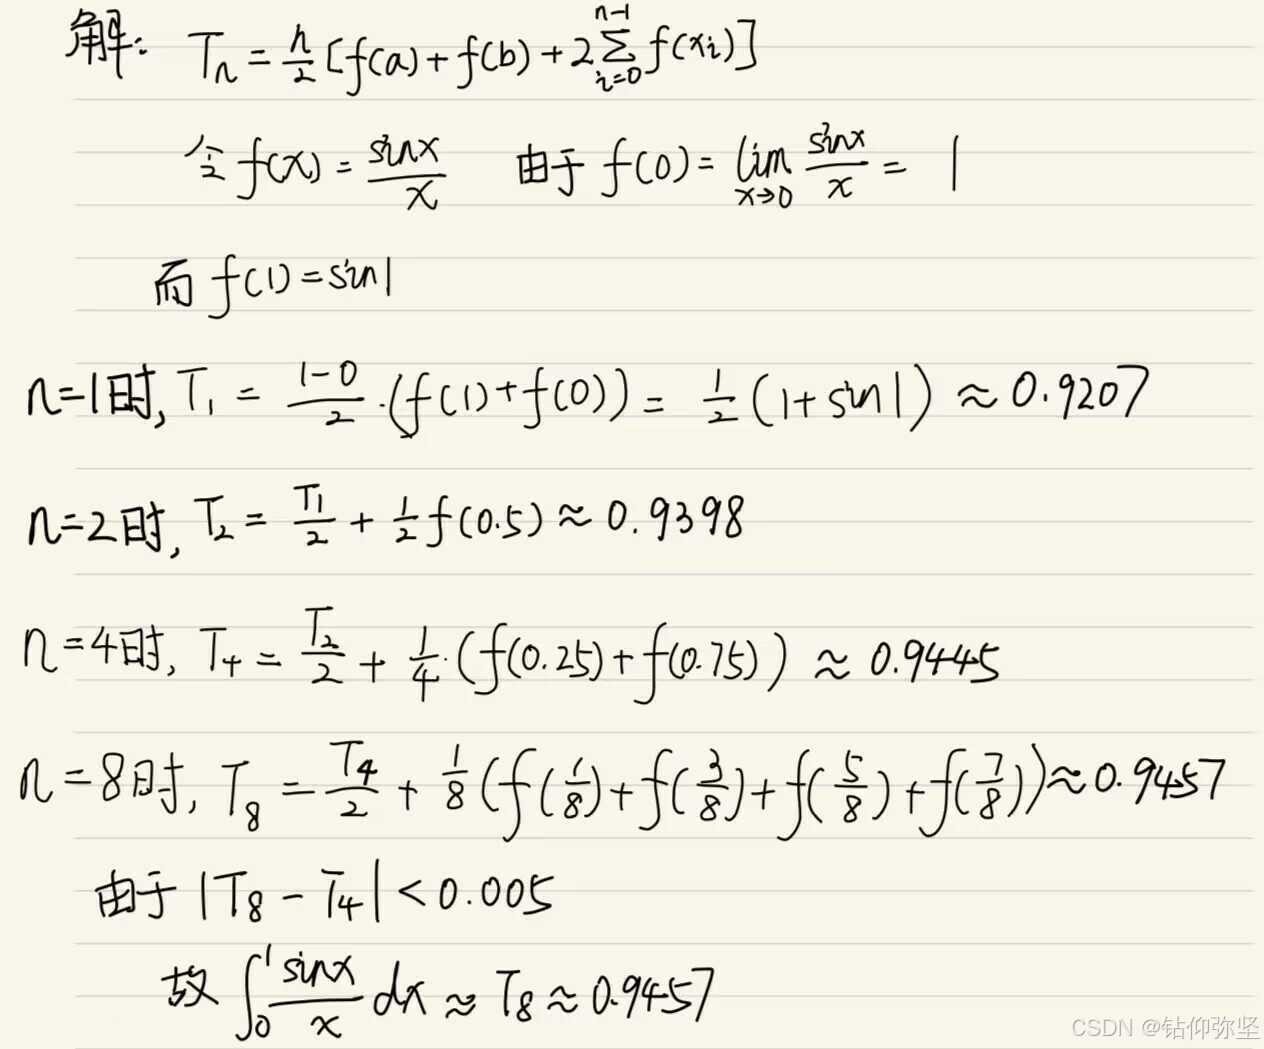 解: Tₙ = h/2 [f(a) + f(b) + 2∑_{i=0}^{n-1} f(xᵢ)]
令 f(x) = sinx/x 由于 f(0) = lim_{x→0} sinx/x = 1
而 f(1) = sin1
n=1时, T₁ = (1-0)/2 ·(f(1)+f(0)) = 1/2 (1+sin1) ≈ 0.9207
n=2时, T₂ = T₁/2 + 1/2 f(0.5) ≈ 0.9398
n=4时, T₄ = T₂/2 + 1/4·(f(0.25)+f(0.75)) ≈ 0.9445
n=8时, T₈ = T₄/2 + 1/8 (f(1/8)+f(3/8)+f(5/8)+f(7/8)) ≈ 0.9457
由于 |T₈ - T₄| < 0.005
故 ∫₀¹ sinx/x dx ≈ T₈ ≈ 0.9457
CSDN @钻仰弥坚